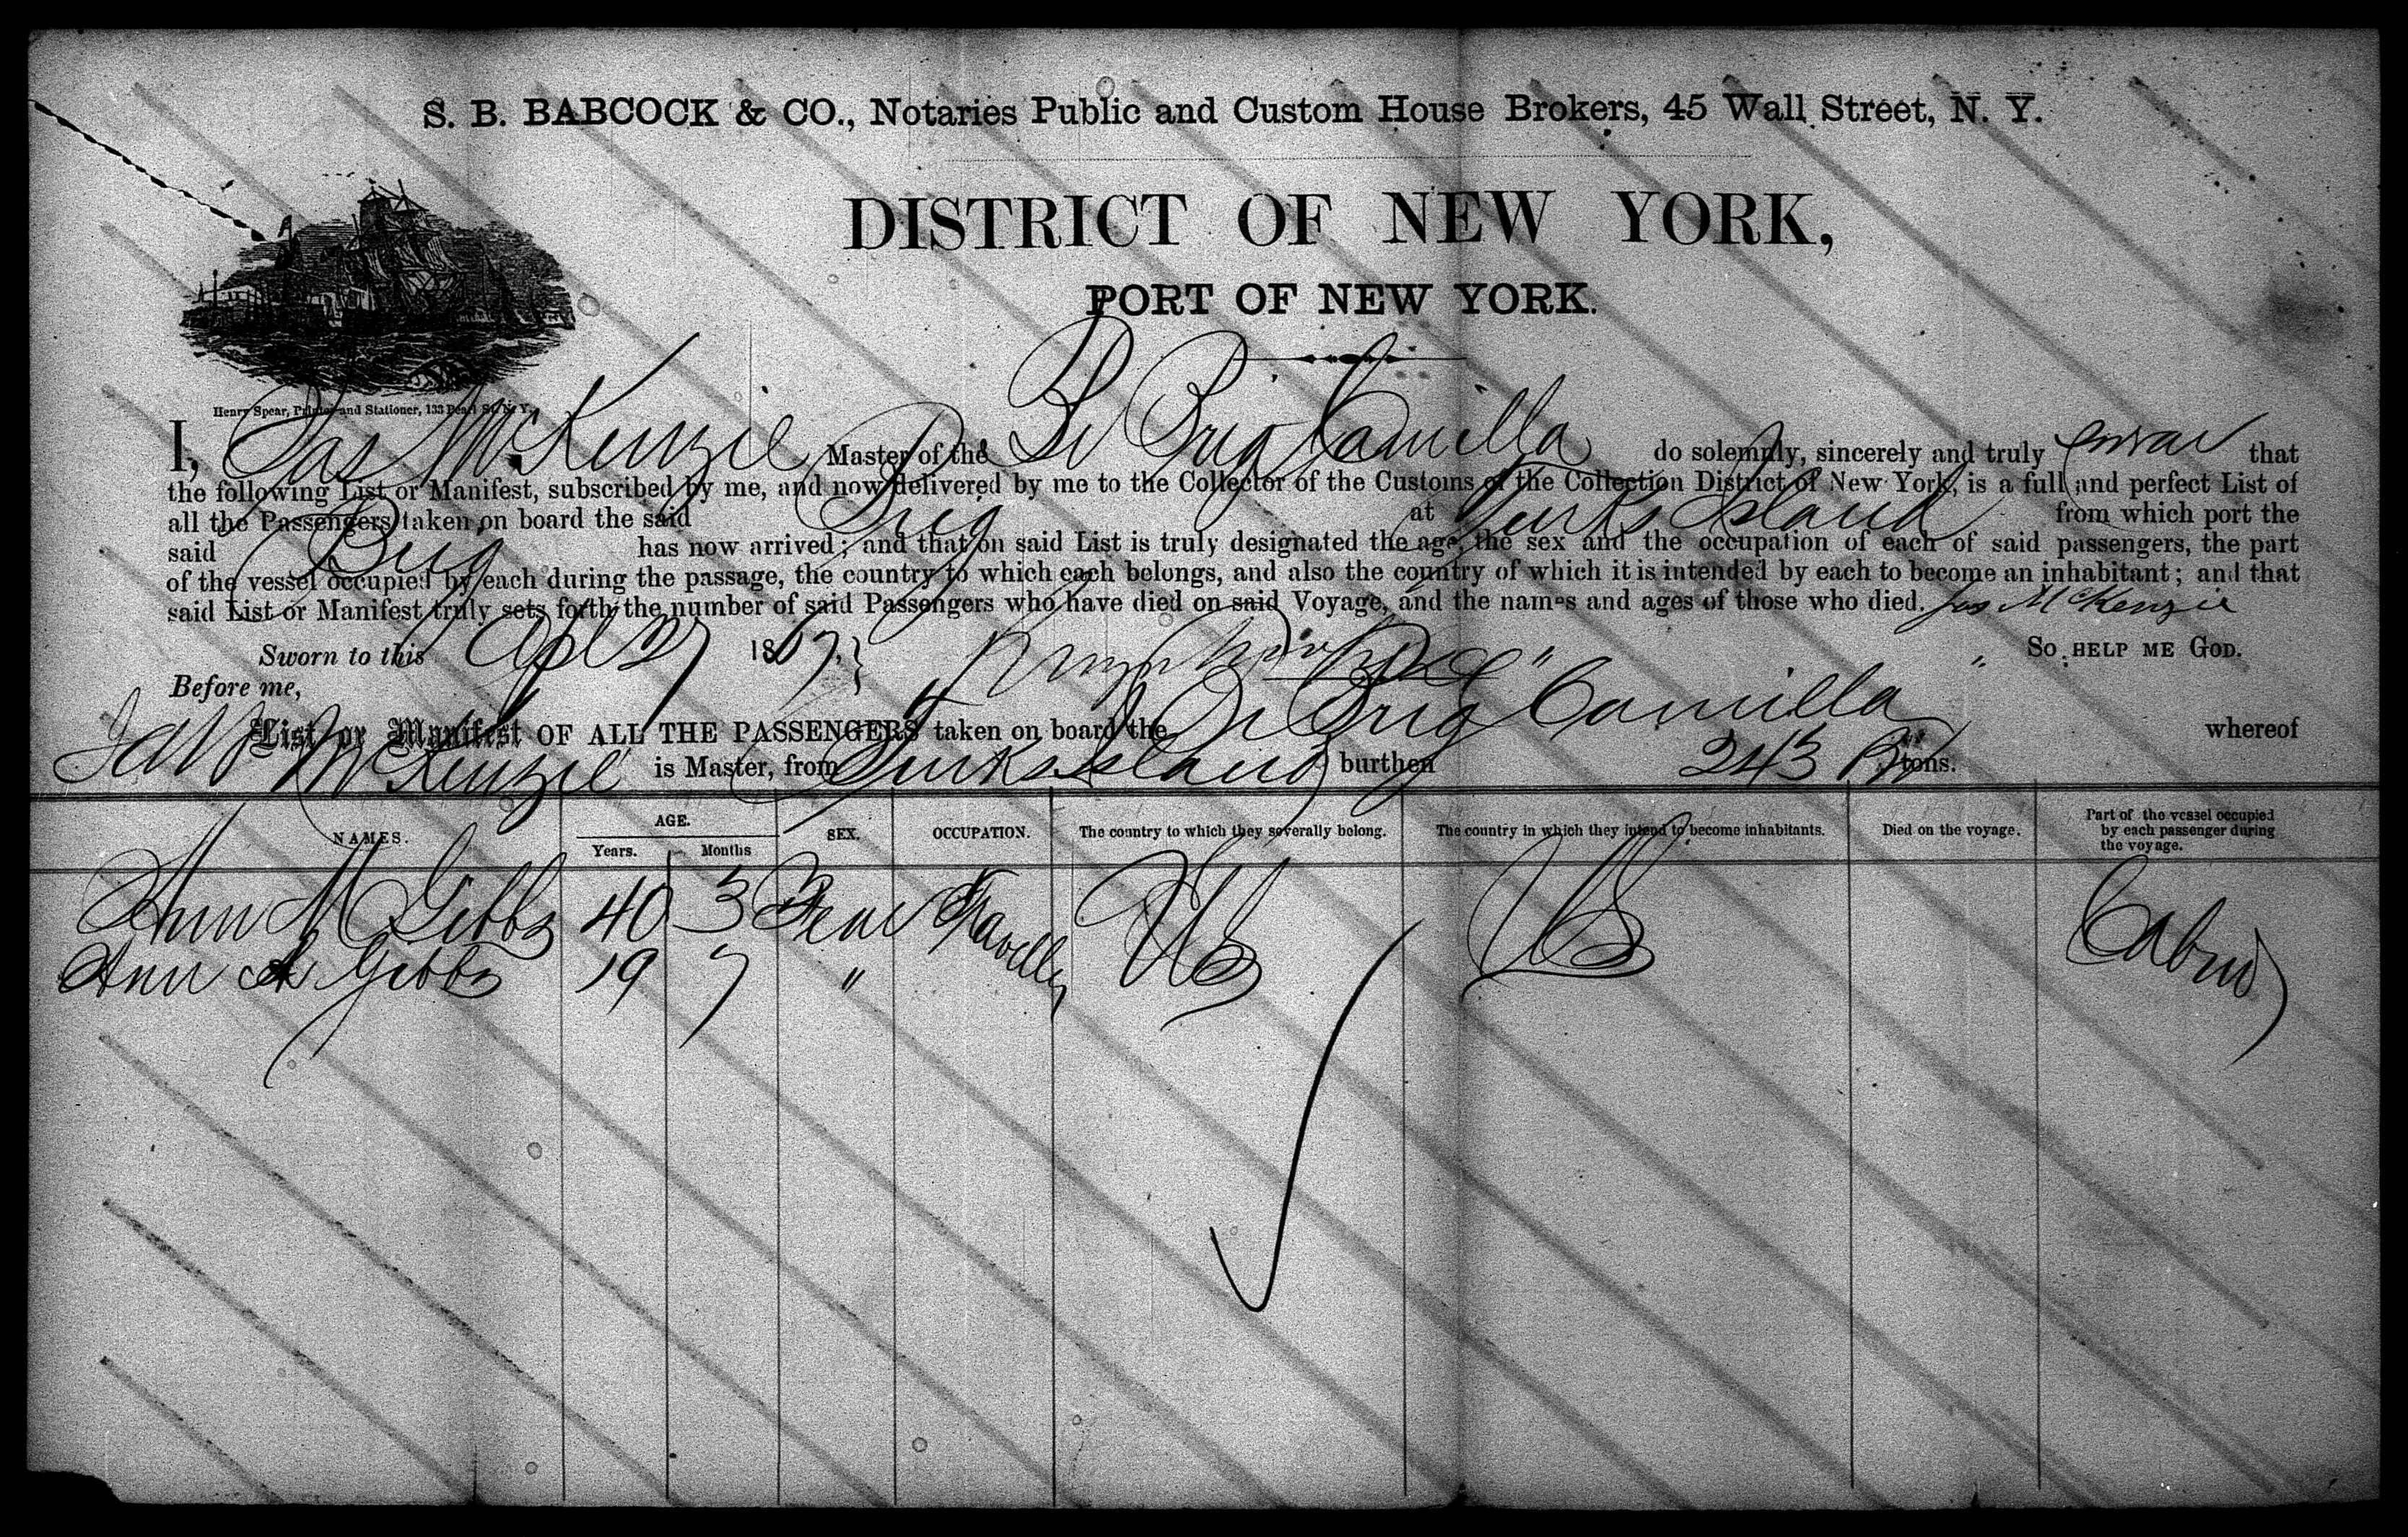 S. B. BABCOCK & CO., Notaries Public and Custom House Brokers, 45 Wall Street, N. Y.
DISTRICT OF NEW YORK,
PORT OF NEW YORK.
Henry Spear, Printer and Stationer, 133 Pearl St. N. Y.
I, Jas McKenzie Master of the Br Brig Camilla do solemnly, sincerely and truly swear that
the following List or Manifest, subscribed by me, and now delivered by me to the Collector of the Customs of the Collection District of New York, is a full and perfect List of
all the Passengers taken on board the said Brig at Turks Island from which port the
said Brig has now arrived; and that on said List is truly designated the age, the sex and the occupation of each of said passengers, the part
of the vessel occupied by each during the passage, the country to which each belongs, and also the country of which it is intended by each to become an inhabitant; and that
said List or Manifest truly sets forth the number of said Passengers who have died on said Voyage, and the names and ages of those who died. Jas McKenzie
Sworn to this Apl 27 1867, SO HELP ME GOD.
Before me,
List or Manifest OF ALL THE PASSENGERS taken on board the Br Brig "Camilla" whereof
Jas McKenzie is Master, from Turks Island burthen 243 tons.
NAMES. AGE. Years. Months SEX. OCCUPATION. The country to which they severally belong. The country in which they intend to become inhabitants. Died on the voyage. Part of the vessel occupied by each passenger during the voyage.
Ann M Gibbs 40 3 Fem Travellg US US Cabin
Ann A Gibbs 19 7 "